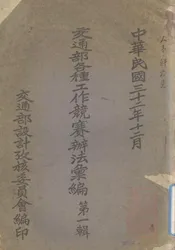 中華民國三十二年十二月
交通部各種工作競賽辦法彙編 第一輯
交通部設計攷核委員會編印